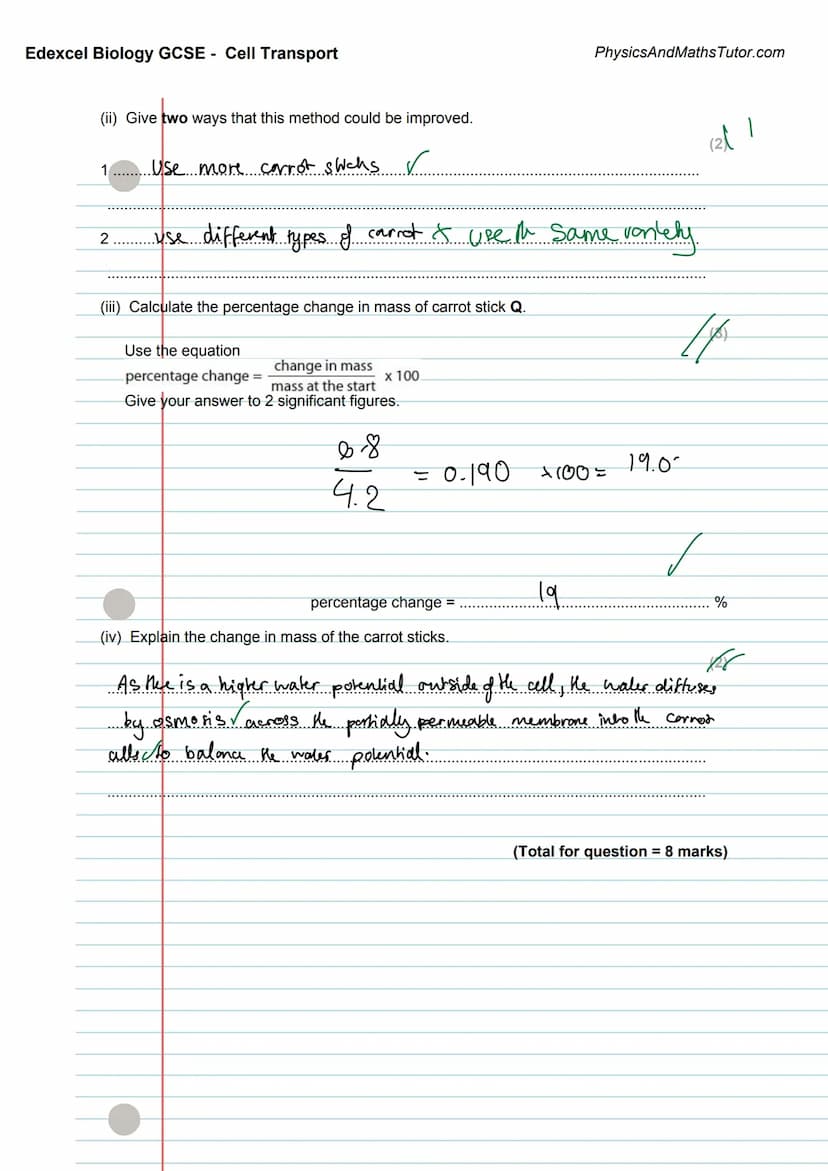 Edexcel Biology GCSE - Cell Transport
PhysicsAndMathsTutor.com
(ii) Give two ways that this method could be improved.
(2) 1
1 Use more carrot sticks ✓
2 use different types of carrot x use the same variety.
(iii) Calculate the percentage change in mass of carrot stick Q.
(3)
Use the equation
percentage change = change in mass / mass at the start x 100
Give your answer to 2 significant figures.
0.8
4.2
= 0.190 x100= 19.0
✓
percentage change = 19 %
(iv) Explain the change in mass of the carrot sticks.
(2)
As there is a higher water potential outside of the cell, the water diffuses
by osmosis ✓ across the partially permeable membrane into the carrot
cells ✓ to balance the water potential.
(Total for question = 8 marks)